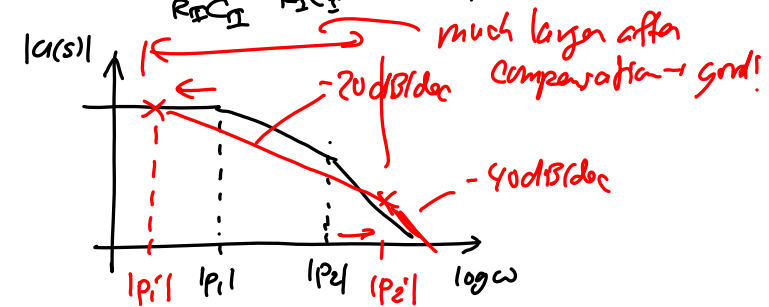 R_II C_II
|a(s)|
much larger after
compensation → good!
-20dB/dec
-40dB/dec
|p₁'| |p₁| |p₂| |p₂'| log ω